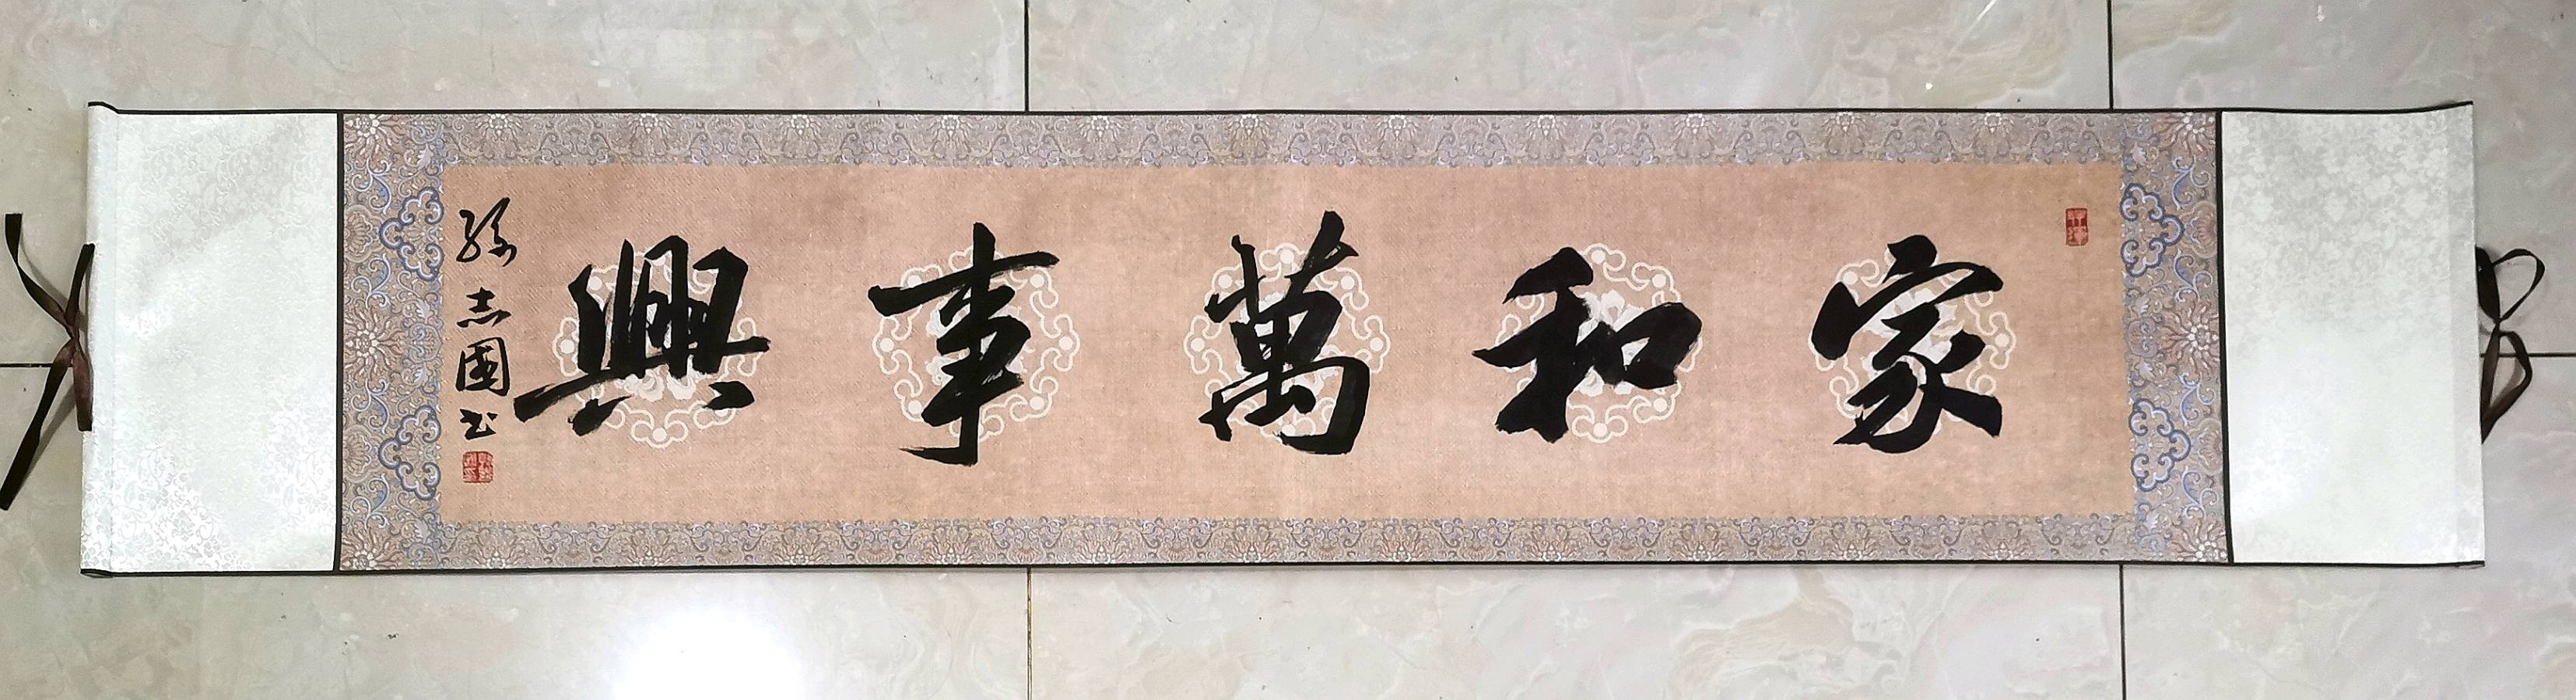 家和萬事興
孫志國书